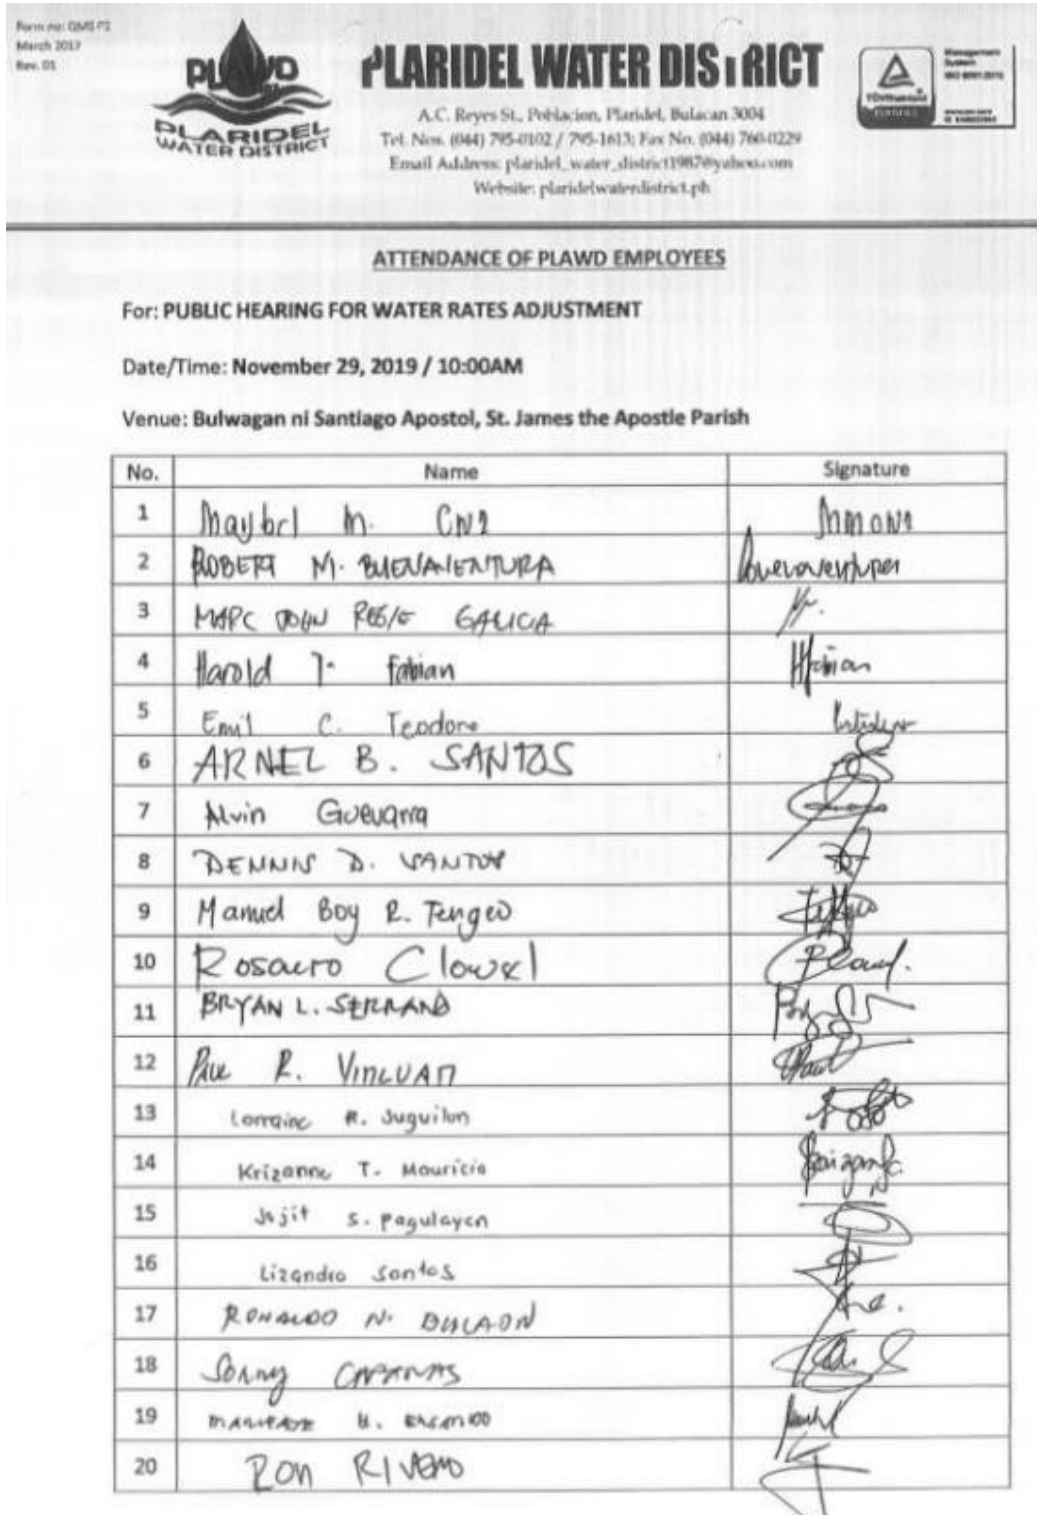 Form no: GMS-P2
March 2017
Rev. 01
PLAWD
PLARIDEL
WATER DISTRICT
PLARIDEL WATER DISTRICT
A.C. Reyes St., Poblacion, Plaridel, Bulacan 3004
Tel. Nos. (044) 795-0102 / 795-1613; Fax No. (044) 760-0229
Email Address: plaridel_water_district1987@yahoo.com
Website: plaridelwaterdistrict.ph
TÜVRheinland
CERTIFIED
Management
System
ISO 9001:2015
ATTENDANCE OF PLAWD EMPLOYEES
For: PUBLIC HEARING FOR WATER RATES ADJUSTMENT
Date/Time: November 29, 2019 / 10:00AM
Venue: Bulwagan ni Santiago Apostol, St. James the Apostle Parish
No. Name Signature
1 Maybel M.
2 ROBERT M. BUENAVENTURA
3 MARC JOHN GALICIA
4 Harold T. Fabian
5 Emil C. Teodoro
6 ARNEL B. SANTOS
7 Alvin Guevarra
8 DENNIS D. SANTOS
9 Manuel Boy R. Tengco
10 Rosauro
11 BRYAN L. SERRANO
12 R. VINLUAN
13 Lorraine R. Juguilon
14 Krizanne T. Mauricio
15 Jojit S. Pagulayan
16 Lizandro Santos
17 RONALDO N. BULAON
18 Sonny
19
20 RON RIVERO